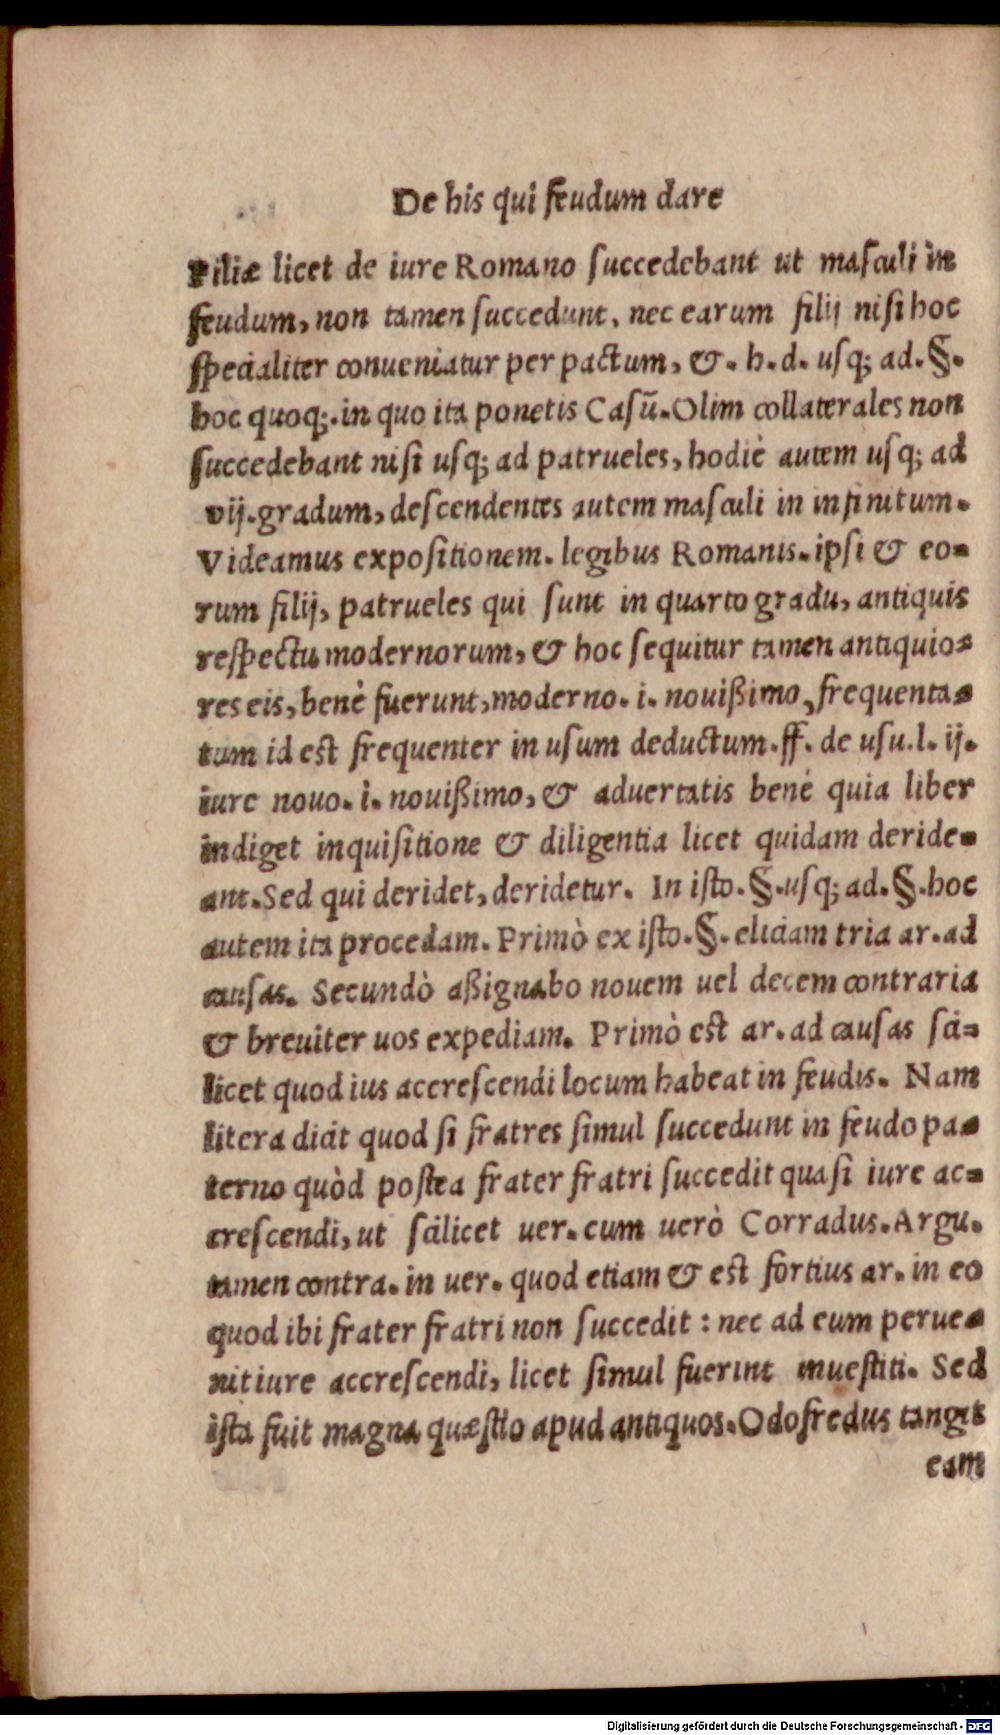 De his qui feudum dare
Filiæ licet de iure Romano succedebant ut masculi in
feudum, non tamen succedunt, nec earum filij nisi hoc
specialiter conueniatur per pactum, &. h. d. usq; ad. §.
hoc quoq;. in quo ita ponetis Casū. Olim collaterales non
succedebant nisi usq; ad patrueles, hodiè autem usq; ad
vij. gradum, descendentes autem masculi in infinitum.
Videamus expositionem. legibus Romanis. ipsi & eo-
rum filij, patrueles qui sunt in quarto gradu, antiquis
respectu modernorum, & hoc sequitur tamen antiquio-
res eis, benè fuerunt, moderno. i. nouißimo, frequenta-
tum id est frequenter in usum deductum. ff. de usu. l. ij.
iure nouo. i. nouißimo, & aduertatis benè quia liber
indiget inquisitione & diligentia licet quidam deride-
ant. Sed qui deridet, deridetur. In isto. §. usq; ad. §. hoc
autem ita procedam. Primò ex isto. §. eliciam tria ar. ad
causas. Secundò aßignabo nouem uel decem contraria
& breuiter uos expediam. Primò est ar. ad causas sci-
licet quod ius accrescendi locum habeat in feudis. Nam
litera dicit quod si fratres simul succedunt in feudo pa-
terno quòd postea frater fratri succedit quasi iure ac-
crescendi, ut scilicet uer. cum uerò Corradus. Argu.
tamen contra. in uer. quod etiam & est fortius ar. in eo
quod ibi frater fratri non succedit : nec ad eum perue-
nit iure accrescendi, licet simul fuerint inuestiti. Sed
ista fuit magna quæstio apud antiquos. Odofredus tanget
eam
Digitalisierung gefördert durch die Deutsche Forschungsgemeinschaft - DFG